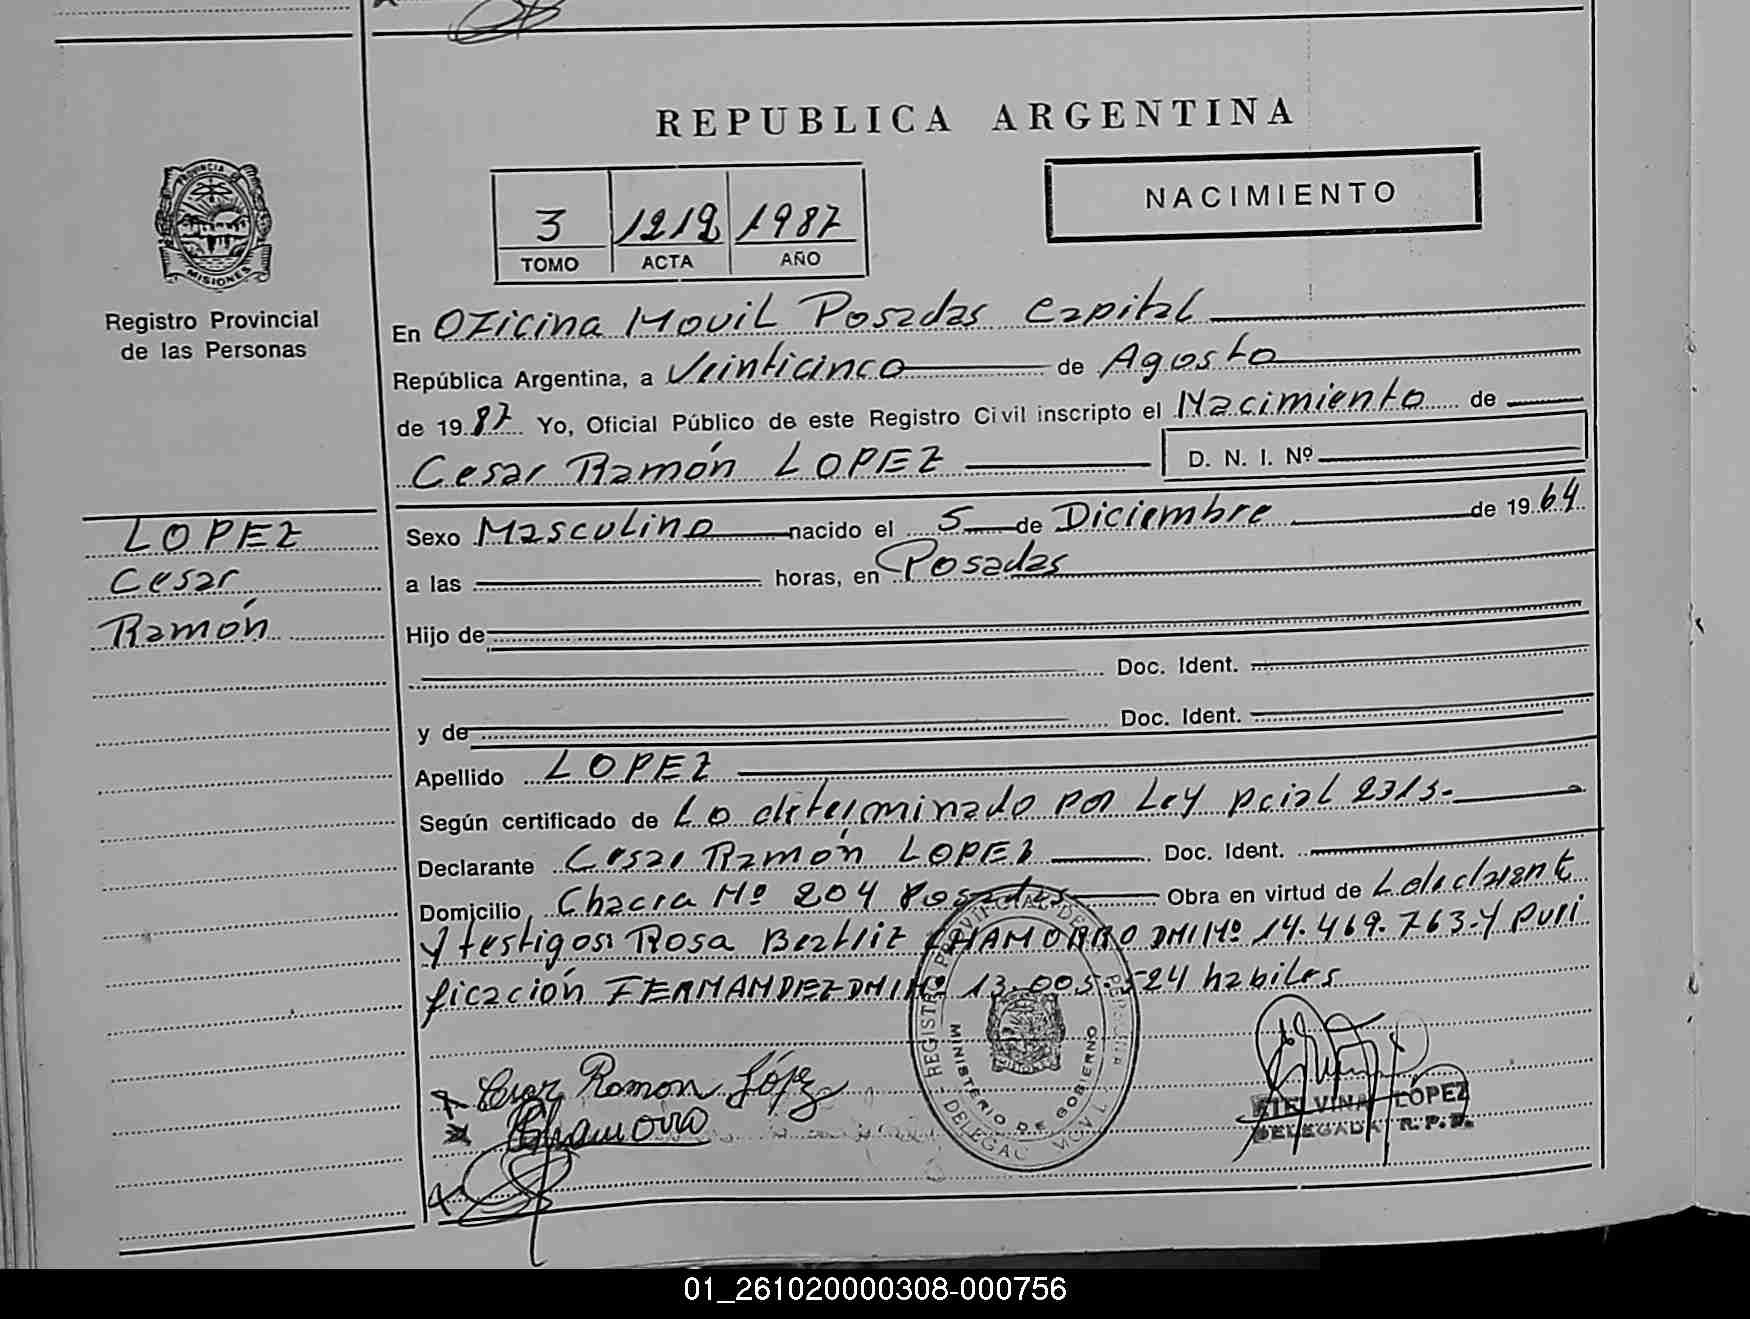 REPUBLICA ARGENTINA
PROVINCIA DE
MISIONES
Registro Provincial
de las Personas
3 1212 1987
TOMO ACTA AÑO
NACIMIENTO
En Oficina Movil Posadas Capital
República Argentina, a Veinticinco de Agosto
de 1987 Yo, Oficial Público de este Registro Civil inscripto el Nacimiento de
Cesar Ramón LOPEZ D. N. I. Nº
LOPEZ
Cesar
Ramón
Sexo Masculino nacido el 5 de Diciembre de 1964
a las horas, en Posadas
Hijo de
Doc. Ident.
y de Doc. Ident.
Apellido LOPEZ
Según certificado de Lo determinado por Ley pcial 2313.
Declarante Cesar Ramón LOPEZ Doc. Ident.
Domicilio Chacra Nº 204 Posadas Obra en virtud de L declarant
y testigos: Rosa Beatriz CHAMORRO DNI Nº 14.469.763. y Puri
ficación FERNANDEZ DNI Nº 13.005.524 habiles
REGISTRO PROVINCIAL DE
MINISTERIO DE GOBIERNO
Cesar Ramon López
Chamorro
ETELVINA LÓPEZ
DELEGADA R.P.P.
01_261020000308-000756